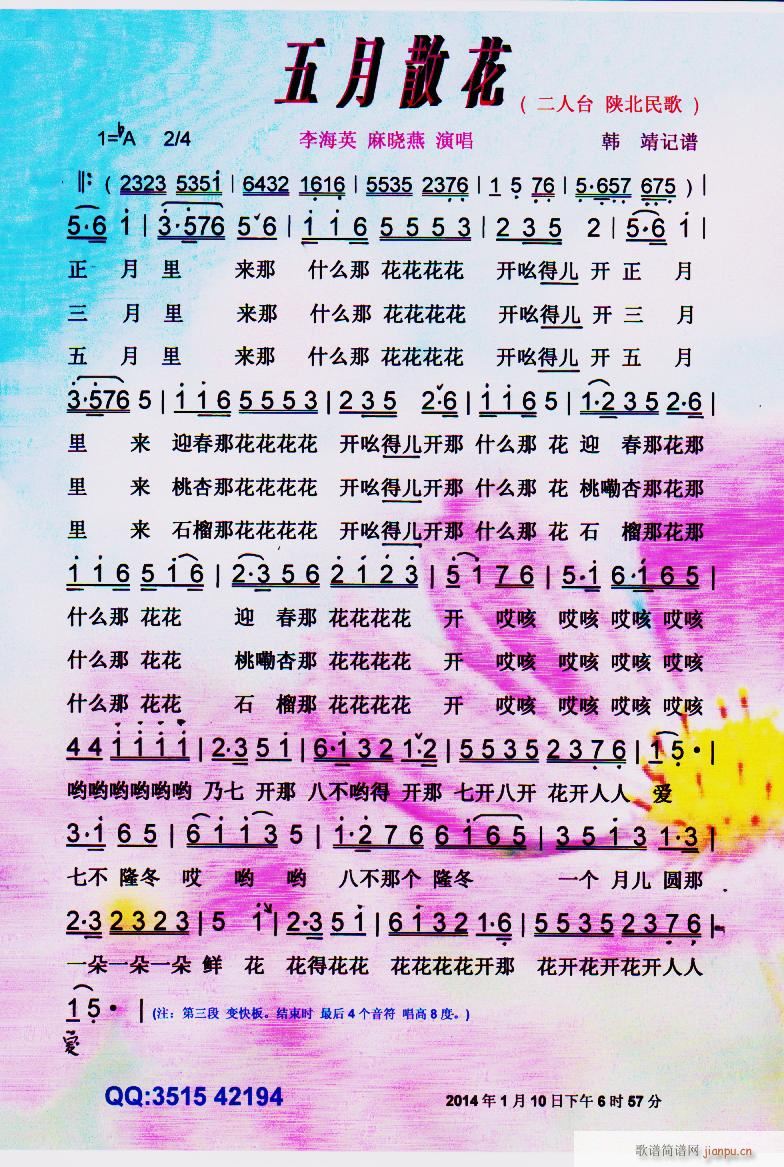 五月散花
（二人台 陕北民歌）
1=♭A 2/4 李海英 麻晓燕 演唱 韩 靖记谱
‖: ( 2323 5351 | 6432 1616 | 5535 2376 | 1 5 76 | 5·657 675 ) |
5·6 1 | 3·576 5 6 | 1 1 6 5 5 5 3 | 2 3 5 2 | 5·6 1 |
正 月 里 来那 什么那 花花花花 开吆得儿 开 正 月
三 月 里 来那 什么那 花花花花 开吆得儿 开 三 月
五 月 里 来那 什么那 花花花花 开吆得儿 开 五 月
3·576 5 | 1 1 6 5 5 5 3 | 2 3 5 2·6 | 1 1 6 5 | 1·2 3 5 2·6 |
里 来 迎春那花花花花 开吆得儿开那 什么那 花 迎 春那花那
里 来 桃杏那花花花花 开吆得儿开那 什么那 花 桃嘞杏那花那
里 来 石榴那花花花花 开吆得儿开那 什么那 花 石 榴那花那
1 1 6 5 1 6 | 2·3 5 6 2 1 2 3 | 5 1 7 6 | 5·1 6·1 6 5 |
什么那 花花 迎 春那 花花花花 开 哎咳 哎咳 哎咳 哎咳
什么那 花花 桃嘞杏那 花花花花 开 哎咳 哎咳 哎咳 哎咳
什么那 花花 石 榴那 花花花花 开 哎咳 哎咳 哎咳 哎咳
4 4 1 1 1 1 | 2·3 5 1 | 6·1 3 2 1·2 | 5 5 3 5 2 3 7 6 | 1 5· |
哟哟哟哟哟哟 乃七 开那 八不哟得 开那 七开八开 花开人人 爱
3·1 6 5 | 6 1 1 3 5 | 1·2 7 6 6 1 6 5 | 3 5 1 3 1·3 |
七不 隆冬 哎 哟 哟 八不那个 隆冬 一个 月儿 圆那
2·3 2 3 2 3 | 5 1 | 2·3 5 1 | 6 1 3 2 1·6 | 5 5 3 5 2 3 7 6 |
一朵一朵一朵 鲜 花 花得花花 花花花花开那 花开花开花开人人
1 5· | (注：第三段 变快板。结束时 最后4个音符 唱高8度。)
爱
QQ:3515 42194 2014年1月10日下午6时57分
歌谱简谱网 jianpu.cn